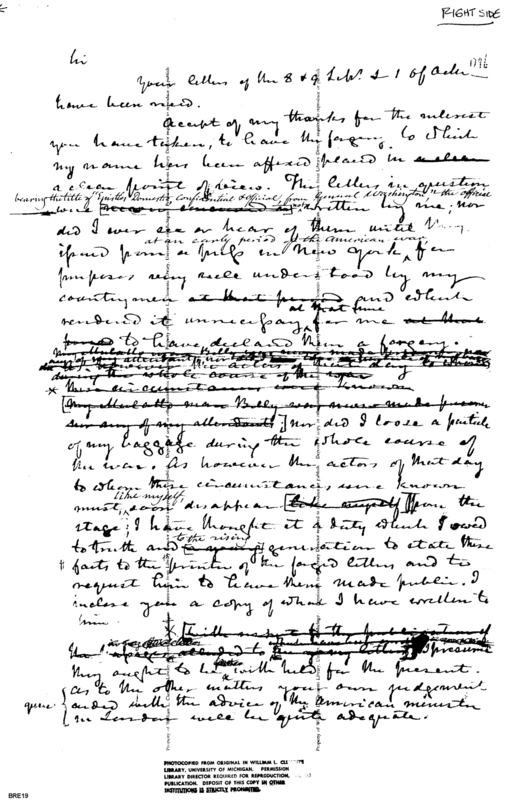 RIGHT SIDE
Sir
1796
Your letters of the 8 & 9 Feby. & 1 of
have been recd.
Accept of my thanks for the interest
you have taken, to have the forgery to which
my name has been affixed placed in
a clear point of view. The letters in question
bearing the title of "Epistles Domestic, Confidential & Official, from General Washington"
were written by me; nor
did I ever see or hear of them until they
at an early period of the American war,
issued from a press in New York, for
purposes very well understood by my
countrymen at that period and which
at that time
rendered it unnecessary for me at that
to have declared them a forgery.
during the whole course of the war
* These circumstances were known
[My Mulatto man Billy was never made prisoner
nor any of my attendants] nor did I loose a particle
of my baggage during the whole course of
the war. As however the actors of that day
to whom these circumstances were known
like myself,
must, soon disappear [like myself] from the
stage; I have thought it a duty which I owed
to the rising
to truth and generation to state these
facts to the printer of the forged letters and to
request him to have them made public. I
inclose you a copy of what I have written to
him.
[With respect to the publication of
presume
they ought to be with held for the present.
as to the other matters your own judgement
quere aided with the advice of the American minister
in London will be quite adequate.
PHOTOCOPIED FROM ORIGINAL IN WILLIAM L.
LIBRARY, UNIVERSITY OF MICHIGAN. PERMISSION
LIBRARY DIRECTOR REQUIRED FOR REPRODUCTION,
PUBLICATION. DEPOSIT OF THIS COPY IN OTHER
INSTITUTIONS IS STRICTLY PROHIBITED.
BRE19